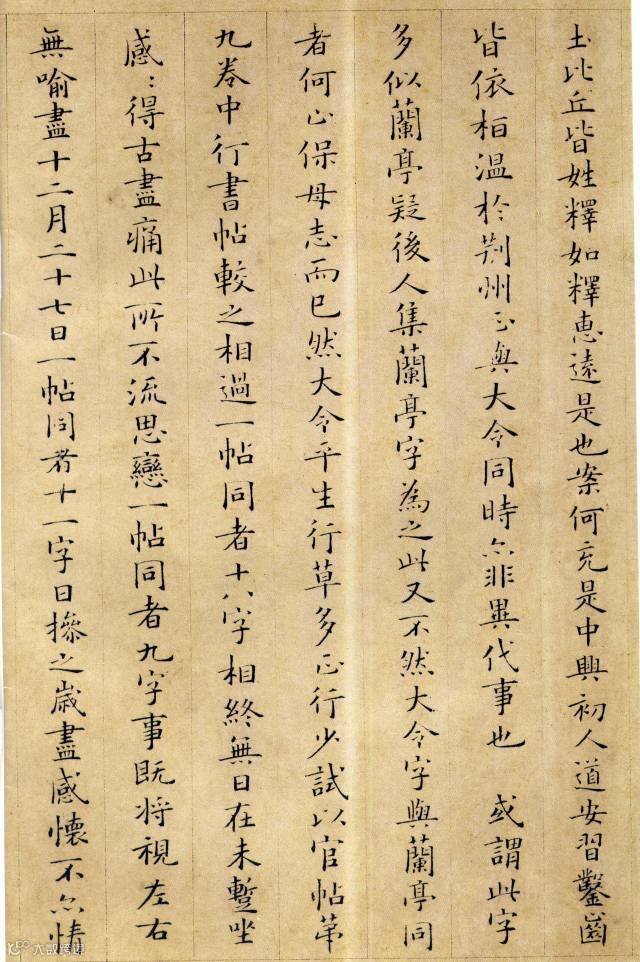 土比丘皆姓釋如釋惠遠是也案何充是中興初人道安習鑿齒
皆依桓溫於荆州正與大令同時亦非異代事也 或謂此字
多似蘭亭疑後人集蘭亭字為之此又不然大令字與蘭亭同
者何止保母志而已然大令平生行草多正行少試以官帖第
九卷中行書帖較之相過一帖同者十八字相終無日在未蹔坐
感〻得古盡痛此所不流思戀一帖同者九字事既將視左右
無喻盡十二月二十七日一帖同者十一字日摻之歲盡感懷不亦情